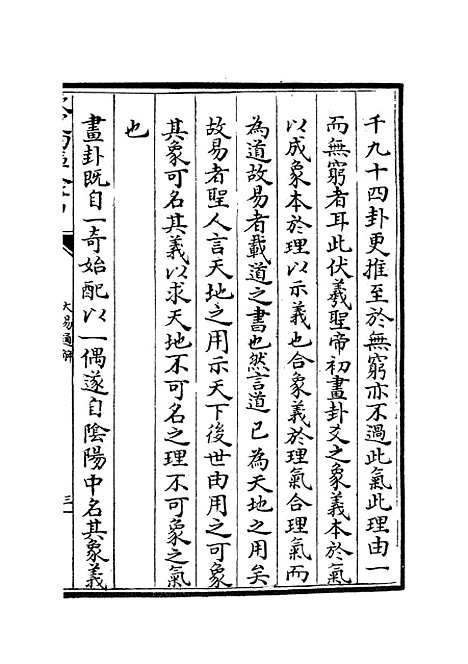 千九十四卦更推至於無窮亦不過此氣此理由一
而無窮者耳此伏羲聖帝初畫卦爻之象義本於氣
以成象本於理以示義也合象義於理氣合理氣而
為道故易者載道之書也然言道已為天地之用矣
故易者聖人言天地之用示天下後世由用之可象
其象可名其義以求天地不可名之理不可象之氣
也
畫卦既自一奇始配以一偶遂自陰陽中名其象義
大易通解